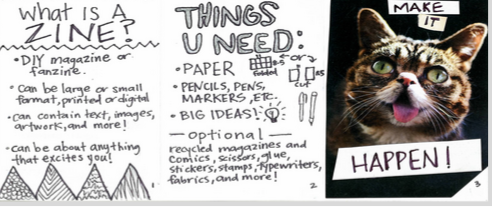 What Is A
ZINE?
• DIY magazine or
fanzine.
• Can be large or small
format, printed or digital
• can contain text, images,
artwork, and more!
• can be about anything
that excites you!
1
THINGS
U NEED:
• PAPER
folded
or
cut
• PENCILS, PENS,
MARKERS, ETC.
• BIG IDEAS!
— optional —
recycled magazines and
comics, scissors, glue,
stickers, stamps, typewriters,
fabrics, and more!
2
MAKE
IT
HAPPEN!
3